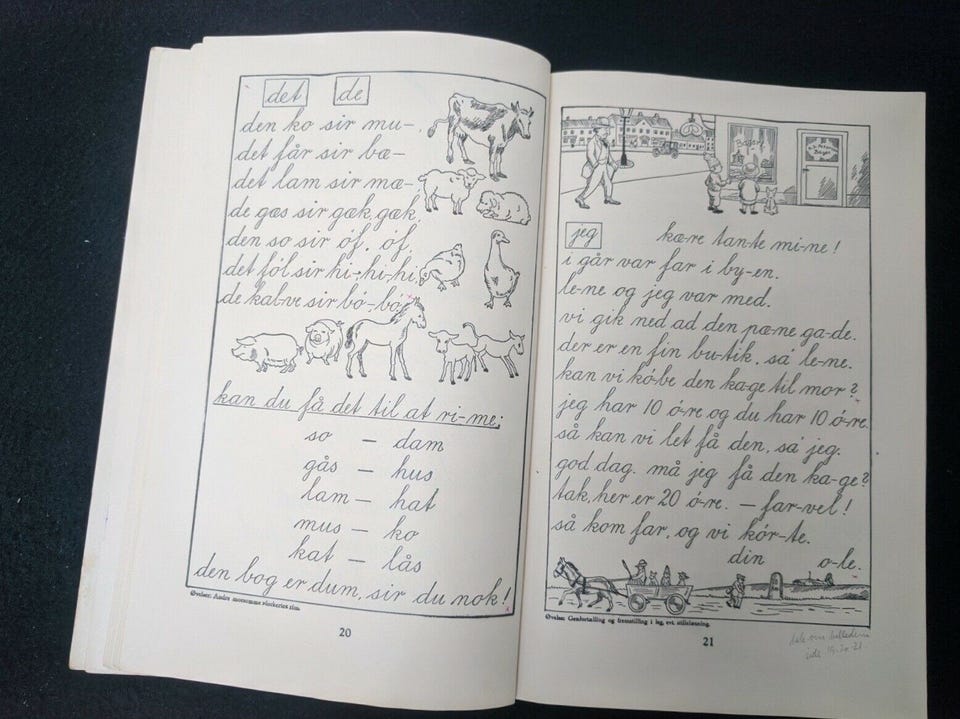 det de
den ko sir mu-
det får sir bæ-
det lam sir mæ-
de gæs sir gæk, gæk,
den so sir óf, óf,
det fól sir hi-hi-hi-hi,
de kal-ve sir bó-, bó,
kan du få det til at ri-me:
so - dam
gås - hus
lam - hat
mus - ko
kat - lås
den bog er dum, sir du nok!
Øvelser: Andre morsomme
20
Bager
Bager
jeg
kæ-re tan-te mi-ne!
i går var far i by-en.
le-ne og jeg var med.
vi gik ned ad den pæ-ne ga-de.
der er en fin bu-tik, sá le-ne.
kan vi kó-be den ka-ge til mor?
jeg har 10 ó-re og du har 10 ó-re.
så kan vi let få den, sá jeg.
god dag. må jeg få den ka-ge?
tak, her er 20 ó-re. - far-vel!
så kom far, og vi kór-te.
din o-le.
Øvelse: Genfortælling og fremstilling i jeg, evt. stilelæsning.
21